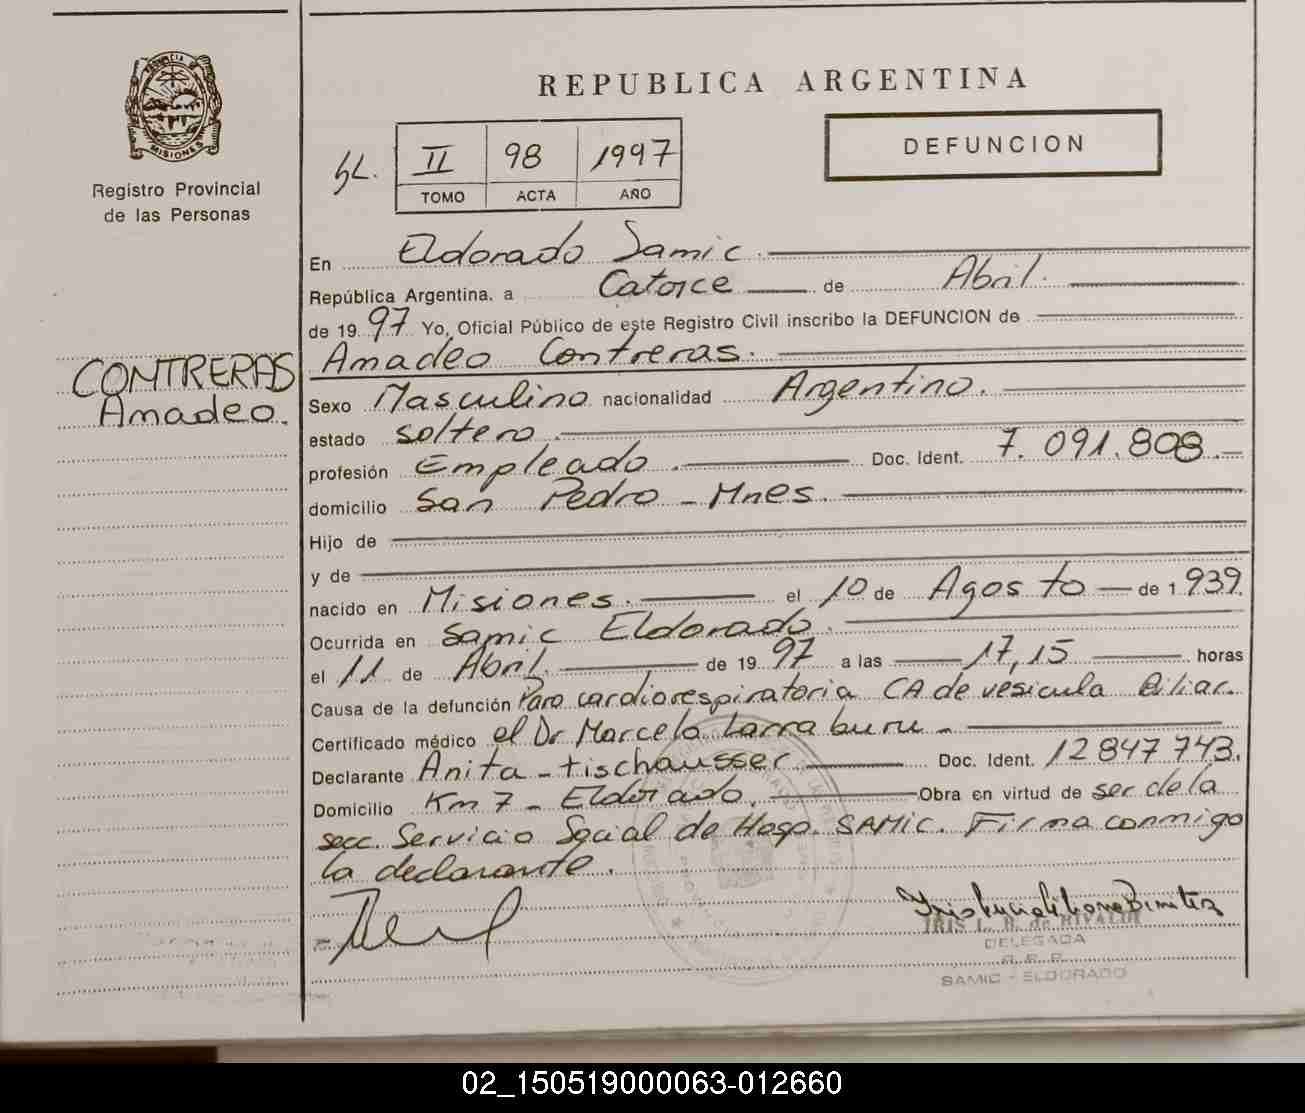 PROVINCIA DE
MISIONES
Registro Provincial
de las Personas
REPUBLICA ARGENTINA
DEFUNCION
II 98 1997
TOMO ACTA AÑO
En Eldorado Samic
República Argentina, a Catorce de Abril
de 1997 Yo, Oficial Público de este Registro Civil inscribo la DEFUNCION de
Amadeo Contreras.
CONTRERAS
Amadeo.
Sexo Masculino nacionalidad Argentino.
estado soltero
profesión Empleado Doc. Ident. 7.091.808
domicilio San Pedro - Mnes.
Hijo de
y de
nacido en Misiones. el 10 de Agosto de 1939.
Ocurrida en Samic Eldorado.
el 11 de Abril de 1997 a las 17,15 horas
Causa de la defunción Paro cardiorespiratoria CA de vesicula Biliar.
Certificado médico el Dr Marcelo Larraburu
Declarante Anita - Tischausser Doc. Ident. 12847743.
Domicilio Km 7 - Eldorado. Obra en virtud de ser de la
secc. Servicio Social de Hosp. SAMIC. Firma conmigo
la declarante.
IRIS L. B. de RIVALDI
DELEGADA
SAMIC - ELDORADO
02_150519000063-012660